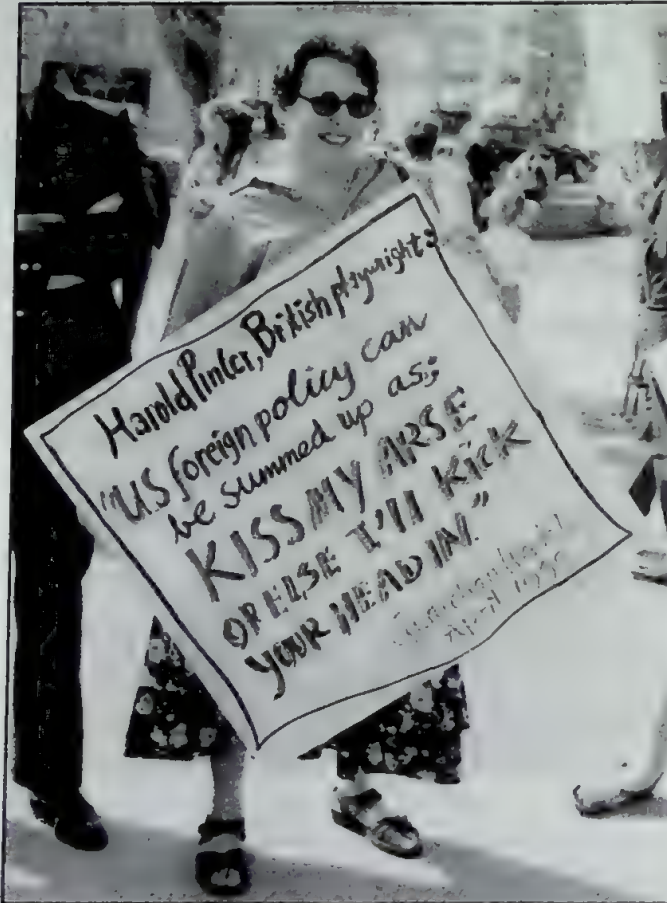 Harold Pinter, British playwright:
"US foreign policy can
be summed up as:
KISS MY ARSE
OR ELSE I'll KicK
YOUR HEAD IN."
April